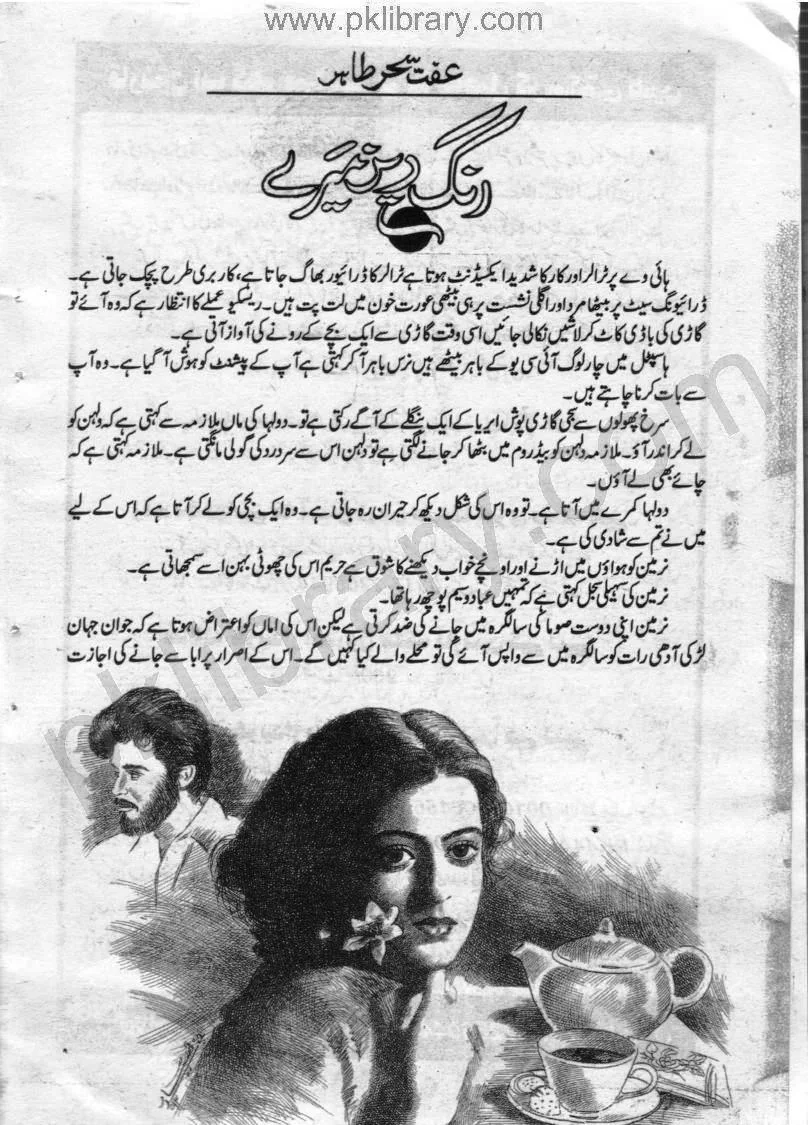 www.pklibrary.com
عفت سحر طاہر
رنگ ریز میرے
ہائی وے پر ٹرالر اور کار کا شدید ایکسیڈنٹ ہوتا ہے ٹرالر کا ڈرائیور بھاگ جاتا ہے، کار بری طرح پچک جاتی ہے۔
ڈرائیونگ سیٹ پر بیٹھا مرد اور اگلی نشست پر ہی بیٹھی عورت خون میں لت پت ہیں۔ ریسکیو عملے کا انتظار ہے کہ وہ آئے تو
گاڑی کی باڈی کاٹ کر لاشیں نکالی جائیں اسی وقت گاڑی سے ایک بچے کے رونے کی آواز آتی ہے۔
ہاسپٹل میں چار لوگ آئی سی یو کے باہر بیٹھے ہیں نرس باہر آکر کہتی ہے آپ کے پیشنٹ کو ہوش آگیا ہے۔ وہ آپ
سے بات کرنا چاہتے ہیں۔
سرخ پھولوں سے سجی گاڑی پوش ایریا کے ایک بنگلے کے آگے رکتی ہے تو۔ دولہا کی ماں ملازمہ سے کہتی ہے کہ دلہن کو
لے کر اندر آؤ۔ ملازمہ دلہن کو بیڈ روم میں بٹھا کر جانے لگتی ہے تو دلہن اس سے سر درد کی گولی مانگتی ہے۔ ملازمہ کہتی ہے کہ
چائے بھی لے آؤں۔
دولہا کمرے میں آتا ہے۔ تو وہ اس کی شکل دیکھ کر حیران رہ جاتی ہے۔ وہ ایک بچی کو لے کر آتا ہے کہ اس کے لیے
میں نے تم سے شادی کی ہے۔
نرمین کو ہواؤں میں اڑنے اور اونچے خواب دیکھنے کا شوق ہے حریم اس کی چھوٹی بہن اسے سمجھاتی ہے۔
نرمین کی سہیلی سجل کہتی ہے کہ تمہیں عباد وسیم پوچھ رہا تھا۔
نرمین اپنی دوست صوما کی سالگرہ میں جانے کی ضد کرتی ہے لیکن اس کی اماں کو اعتراض ہوتا ہے کہ جوان جہان
لڑکی آدھی رات کو سالگرہ میں سے واپس آئے گی تو محلے والے کیا کہیں گے۔ اس کے اصرار پر ابا سے جانے کی اجازت
pklibrary.com